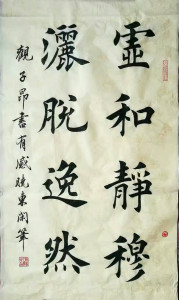 虛和靜穆
灑脫逸然
觀子昂書有感曉東閑筆